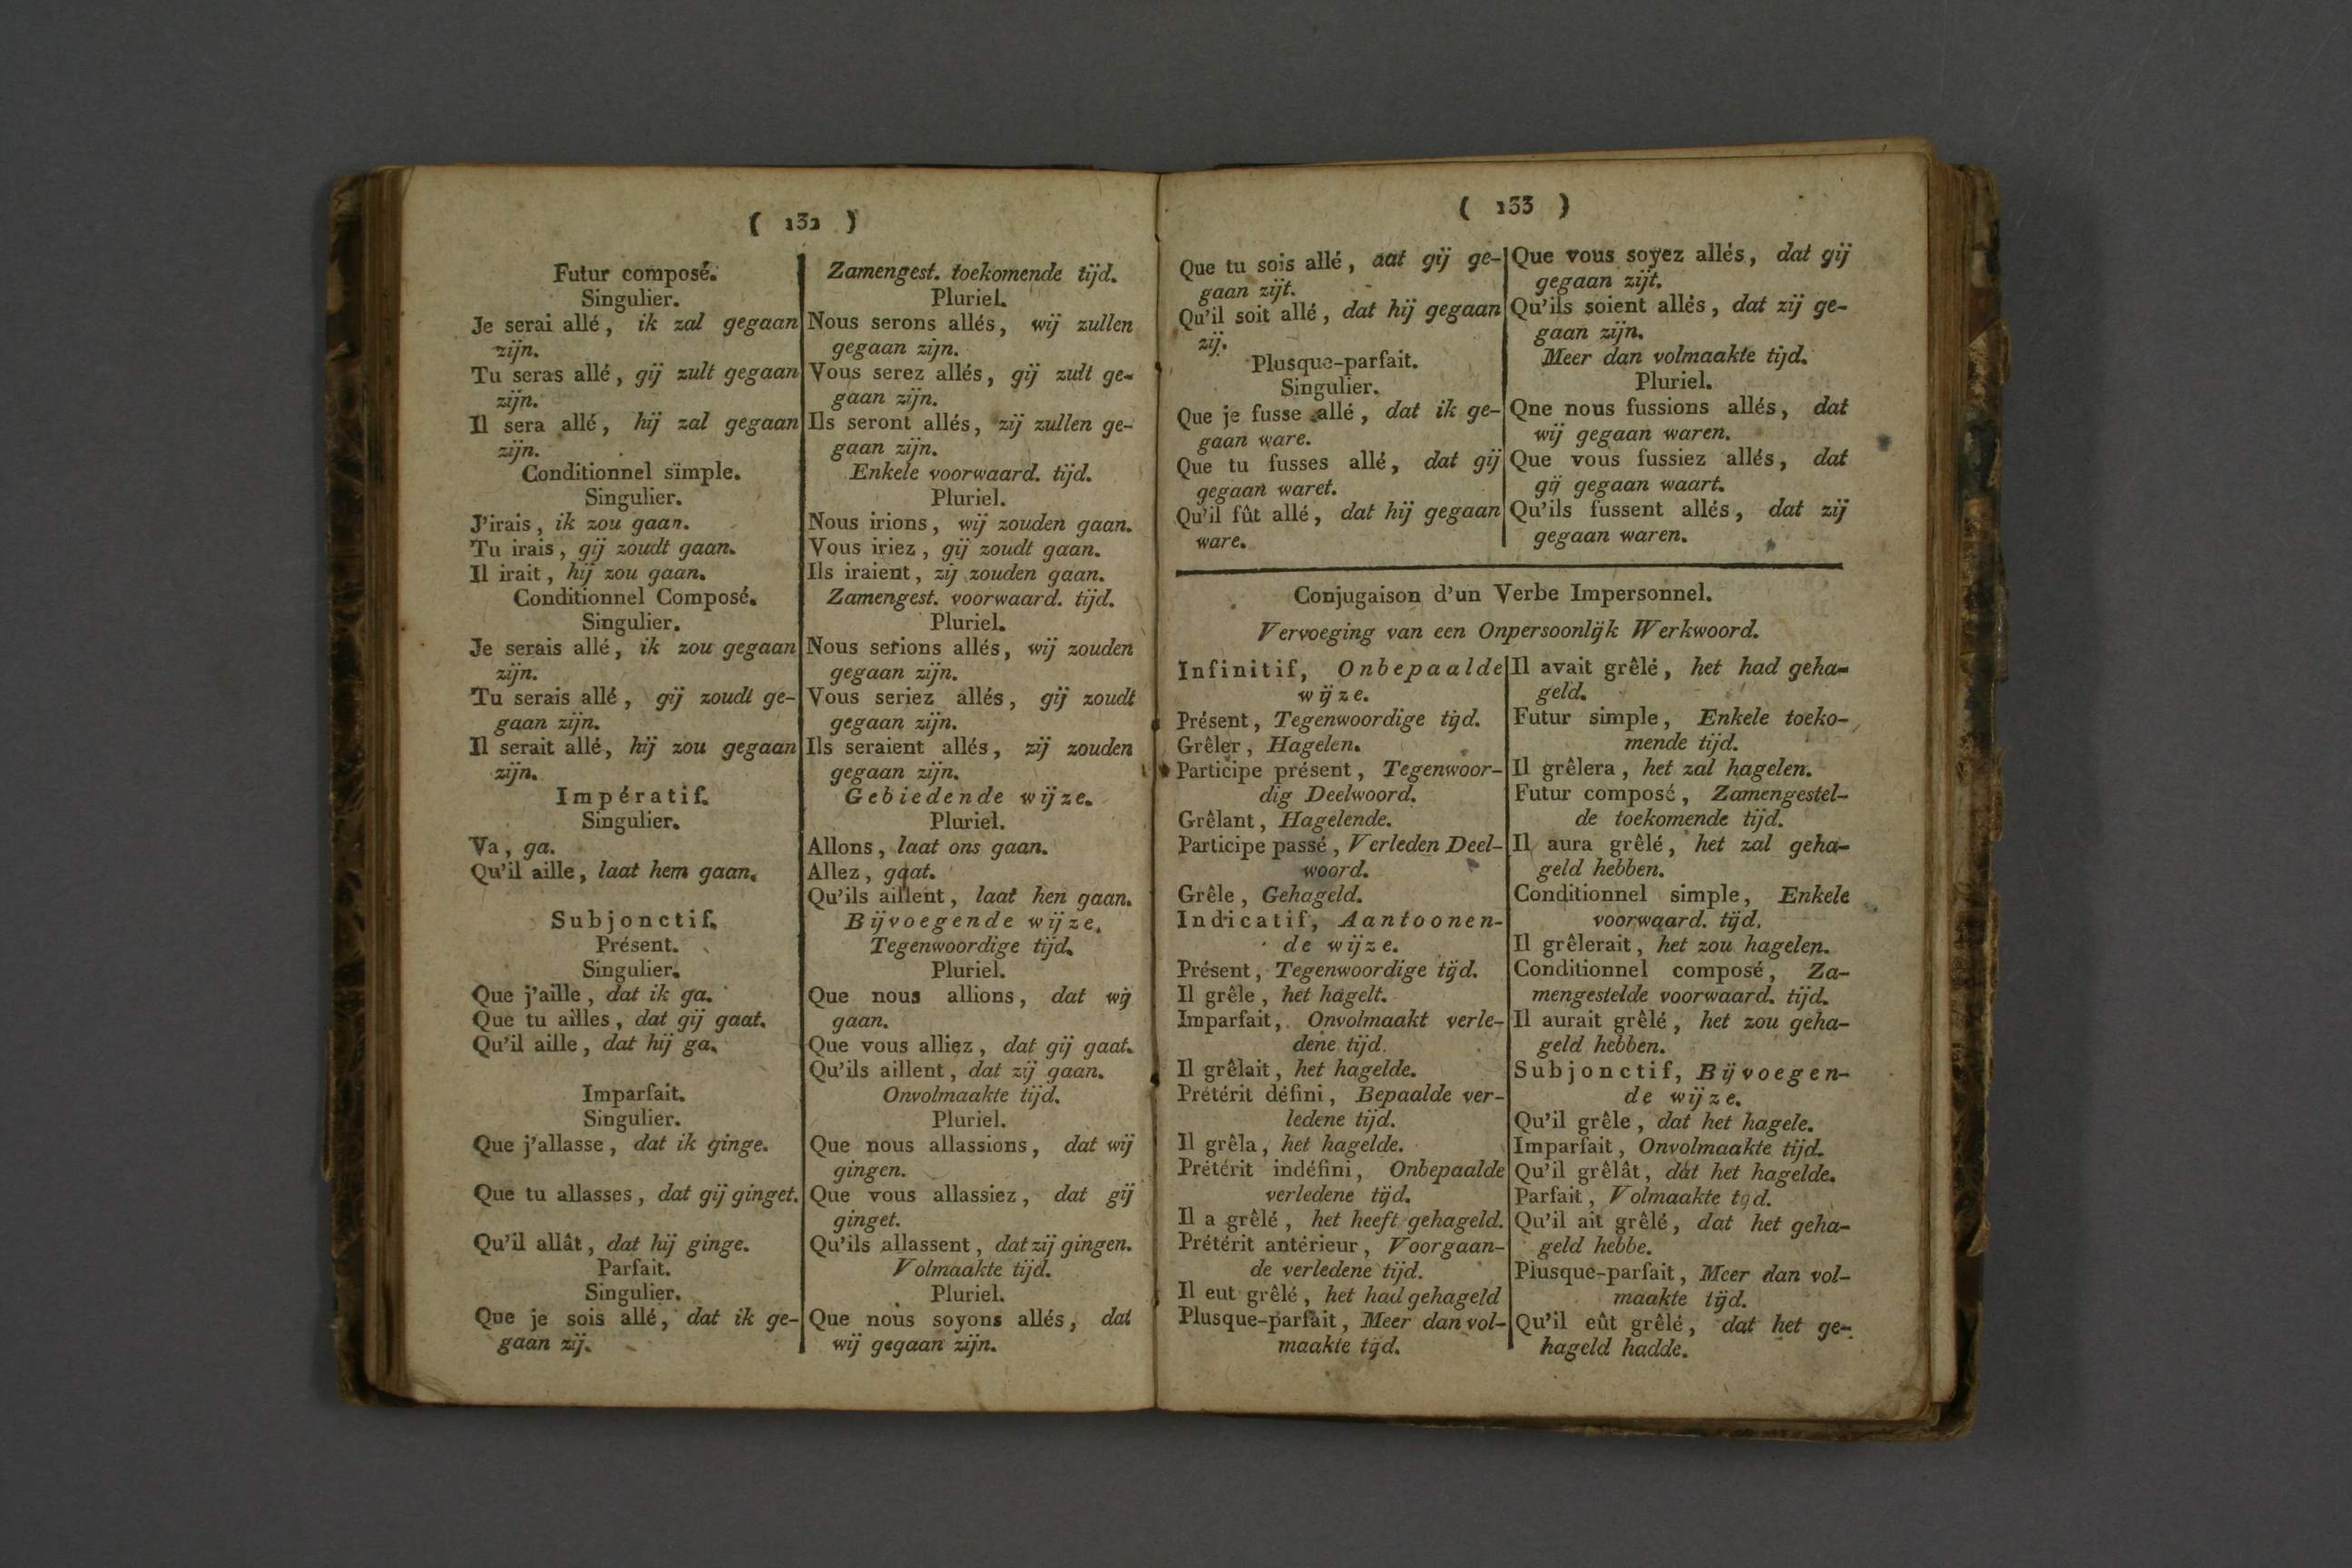 ( 132 )
Futur composé.
Singulier.
Je serai allé, ik zal gegaan
zijn.
Tu seras allé, gij zult gegaan
zijn.
Il sera allé, hij zal gegaan
zijn.
Conditionnel simple.
Singulier.
J'irais, ik zou gaan.
Tu irais, gij zoudt gaan.
Il irait, hij zou gaan.
Conditionnel Composé.
Singulier.
Je serais allé, ik zou gegaan
zijn.
Tu serais allé, gij zoudt ge-
gaan zijn.
Il serait allé, hij zou gegaan
zijn.
Impératif.
Singulier.
Va, ga.
Qu'il aille, laat hem gaan.
Subjonctif.
Présent.
Singulier.
Que j'aille, dat ik ga.
Que tu ailles, dat gij gaat.
Qu'il aille, dat hij ga.
Imparfait.
Singulier.
Que j'allasse, dat ik ginge.
Que tu allasses, dat gij ginget.
Qu'il allât, dat hij ginge.
Parfait.
Singulier.
Que je sois allé, dat ik ge-
gaan zij.
Zamengest. toekomende tijd.
Pluriel.
Nous serons allés, wij zullen
gegaan zijn.
Vous serez allés, gij zult ge-
gaan zijn.
Ils seront allés, zij zullen ge-
gaan zijn.
Enkele voorwaard. tijd.
Pluriel.
Nous irions, wij zouden gaan.
Vous iriez, gij zoudt gaan.
Ils iraient, zij zouden gaan.
Zamengest. voorwaard. tijd.
Pluriel.
Nous serions allés, wij zouden
gegaan zijn.
Vous seriez allés, gij zoudt
gegaan zijn.
Ils seraient allés, zij zouden
gegaan zijn.
Gebiedende wijze.
Pluriel.
Allons, laat ons gaan.
Allez, gaat.
Qu'ils aillent, laat hen gaan.
Bijvoegende wijze.
Tegenwoordige tijd.
Pluriel.
Que nous allions, dat wij
gaan.
Que vous alliez, dat gij gaat.
Qu'ils aillent, dat zij gaan.
Onvolmaakte tijd.
Pluriel.
Que nous allassions, dat wij
gingen.
Que vous allassiez, dat gij
ginget.
Qu'ils allassent, dat zij gingen.
Volmaakte tijd.
Pluriel.
Que nous soyons allés, dat
wij gegaan zijn.
( 133 )
Que tu sois allé, dat gij ge-
gaan zijt.
Qu'il soit allé, dat hij gegaan
zij.
Plusque-parfait.
Singulier.
Que je fusse allé, dat ik ge-
gaan ware.
Que tu fusses allé, dat gij
gegaan waret.
Qu'il fût allé, dat hij gegaan
ware.
Que vous soyez allés, dat gij
gegaan zijt.
Qu'ils soient allés, dat zij ge-
gaan zijn.
Meer dan volmaakte tijd.
Pluriel.
Qne nous fussions allés, dat
wij gegaan waren.
Que vous fussiez allés, dat
gij gegaan waart.
Qu'ils fussent allés, dat zij
gegaan waren.
Conjugaison d'un Verbe Impersonnel.
Vervoeging van een Onpersoonlijk Werkwoord.
Infinitif, Onbepaalde
wijze.
Présent, Tegenwoordige tijd.
Grêler, Hagelen.
Participe présent, Tegenwoor-
dig Deelwoord.
Grêlant, Hagelende.
Participe passé, Verleden Deel-
woord.
Grêle, Gehageld.
Indicatif, Aantoonen-
de wijze.
Présent, Tegenwoordige tijd.
Il grêle, het hagelt.
Imparfait, Onvolmaakt verle-
dene tijd.
Il grêlait, het hagelde.
Prétérit défini, Bepaalde ver-
ledene tijd.
Il grêla, het hagelde.
Prétérit indéfini, Onbepaalde
verledene tijd.
Il a grêlé, het heeft gehageld.
Prétérit antérieur, Voorgaan-
de verledene tijd.
Il eut grêlé, het had gehageld
Plusque-parfait, Meer dan vol-
maakte tijd.
Il avait grêlé, het had geha-
geld.
Futur simple, Enkele toeko-
mende tijd.
Il grêlera, het zal hagelen.
Futur composé, Zamengestel-
de toekomende tijd.
Il aura grêlé, het zal geha-
geld hebben.
Conditionnel simple, Enkele
voorwaard. tijd.
Il grêlerait, het zou hagelen.
Conditionnel composé, Za-
mengestelde voorwaard. tijd.
Il aurait grêlé, het zou geha-
geld hebben.
Subjonctif, Bijvoegen-
de wijze.
Qu'il grêle, dat het hagele.
Imparfait, Onvolmaakte tijd.
Qu'il grêlât, dat het hagelde.
Parfait, Volmaakte tijd.
Qu'il ait grêlé, dat het geha-
geld hebbe.
Plusque-parfait, Meer dan vol-
maakte tijd.
Qu'il eût grêlé, dat het ge-
hageld hadde.